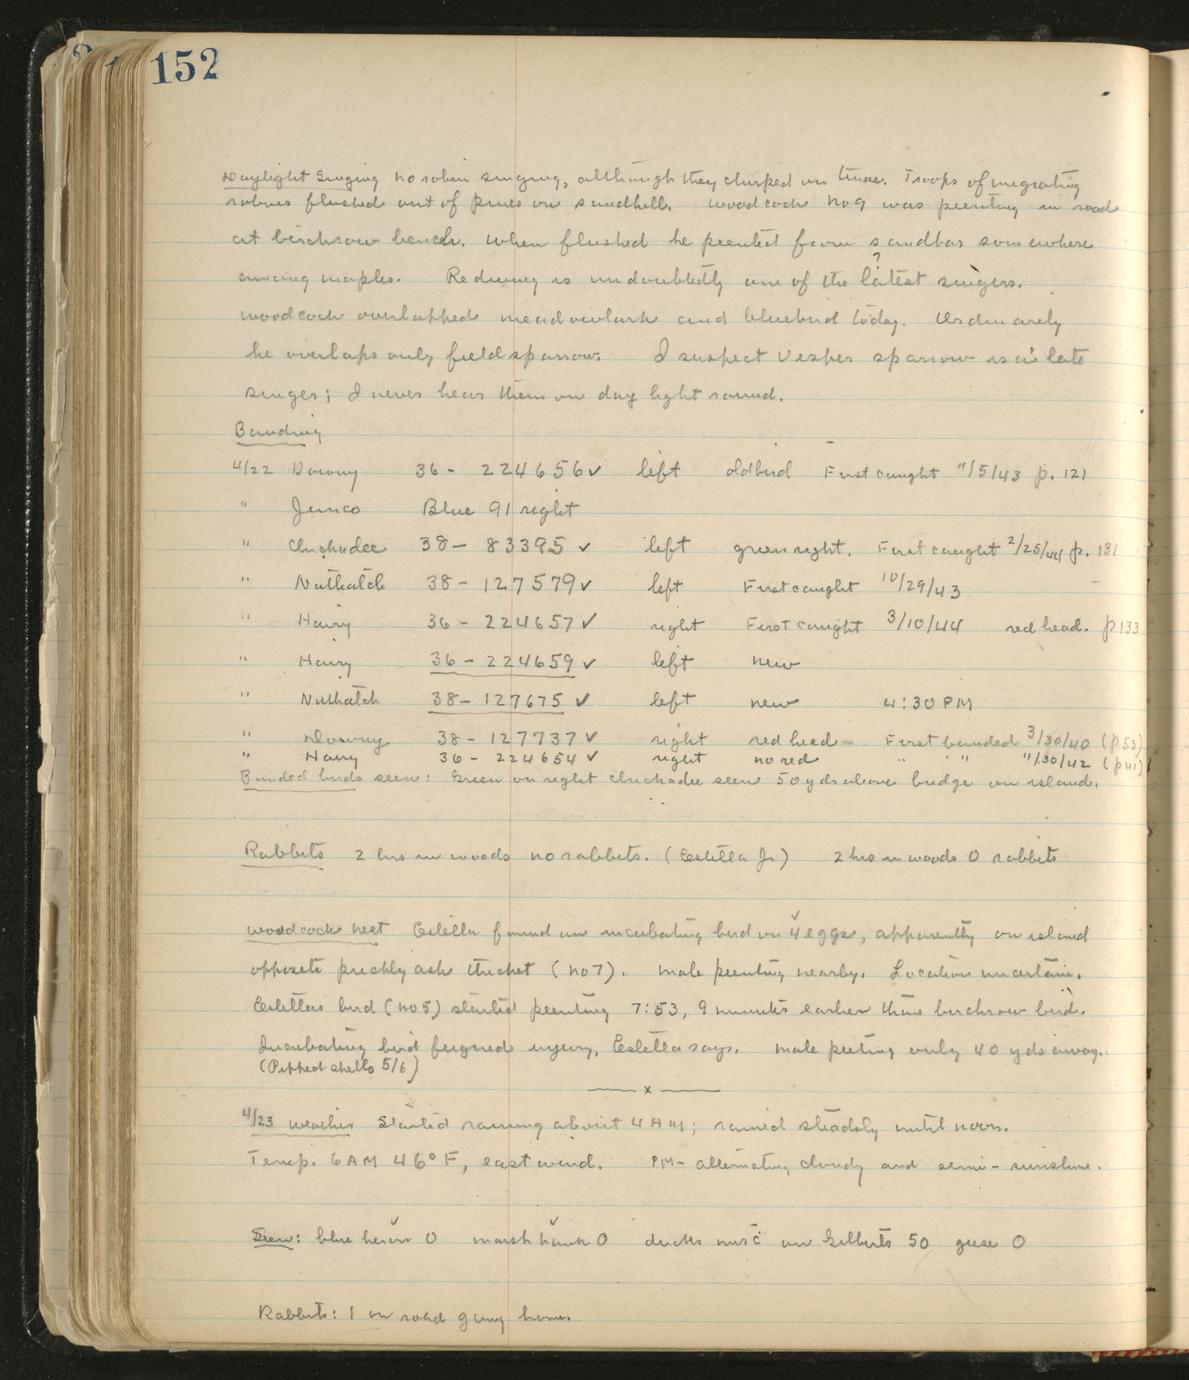 152
Daylight Singing No robin singing, although they chirped on time. Troops of migrating
robins flushed out of pines on sandhill. Woodcock No 9 was peenting in road
at birchrow bench. When flushed he peented from sandbar somewhere
among maples. Redwing is undoubtedly one of the latest ? singers.
Woodcock overlapped meadowlark and bluebird today. Ordinarily
he overlaps only fieldsparrow. I suspect Vesper sparrow is a late
singer; I never hear them on day light round.
Banding
4/22 Downy 36- 224656 ✓ left old bird First caught 11/5/43 p. 121
" Junco Blue 91 right
" Chickadee 38- 83395 ✓ left green right. First caught 2/25/44 p. 131
" Nuthatch 38- 127579 ✓ left First caught 10/29/43
" Hairy 36- 224657 ✓ right First caught 3/10/44 red head. p 133
" Hairy 36- 224659 ✓ left new
" Nuthatch 38- 127675 ✓ left new 4:30 PM
" Downy 38- 127737 ✓ right red head- First banded 3/30/40 (p53)
" Hairy 36- 224654 ✓ right no red " " 11/30/42 (p41)
Banded birds seen: Green on right chickadee seen 50 yds above bridge on island.
Rabbits 2 hrs in woods no rabbits. (Estella Jr) 2 hrs in woods 0 rabbits
Woodcock nest Estella found an incubating bird on 4 eggs, apparently on island
opposite prickly ash thicket (No 7). Male peenting nearby. Location uncertain.
Estellas bird (No 5) started peenting 7:53, 9 minutes earlier than birchrow bird.
Incubating bird feigned injury, Estella says. Male peeting only 40 yds away.
(Pipped shells 5/6)
x
4/23 Weather Started raining about 4 AM; rained steadily until noon.
Temp. 6 AM 46° F, east wind. PM- alternating cloudy and semi-sunshine.
Seen: blue heron 0 marsh hawk 0 ducks misc on Gilberts 50 geese 0
Rabbits: 1 on road going home.